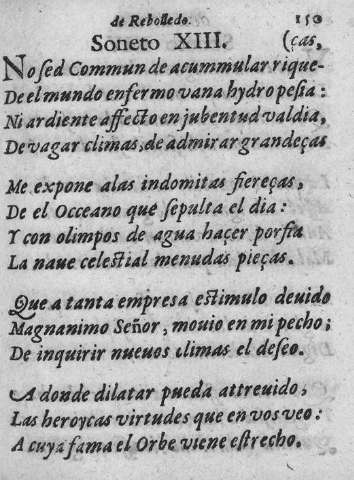 de Rebolledo. 150
Soneto XIII. (ças,
No sed Commun de acummular rique-
De el mundo enfermo vana hydropesia:
Ni ardiente affecto en jubentud valdia,
De vagar climas, de admirar grandeças
Me expone a las indomitas fiereças,
De el Occeano que sepulta el dia:
Y con olimpos de agua haçer porfia
La naue celestial menudas pieças.
Que a tanta empresa estimulo deuido
Magnanimo Señor, mouio en mi pecho;
De inquirir nueuos climas el deseo.
A donde dilatar pueda attreuido,
Las heroycas virtudes que en vos veo:
A cuya fama el Orbe viene estrecho.